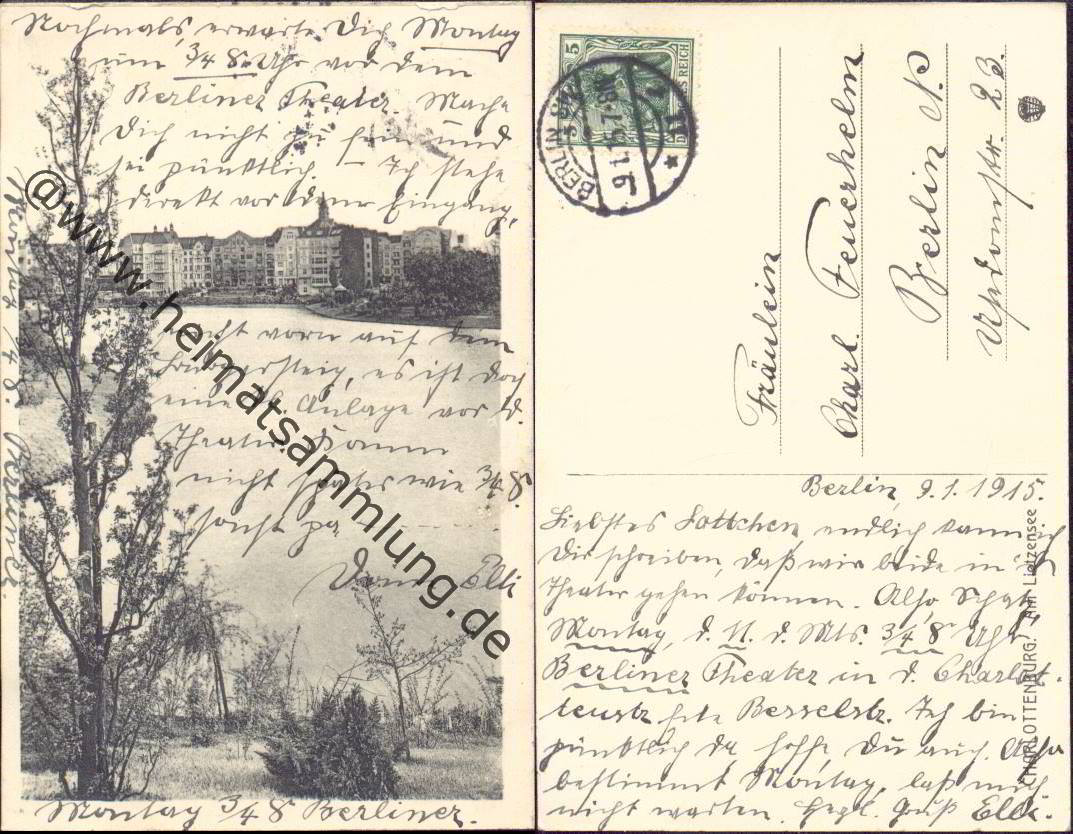 Nochmals, erwarte Dich Montag
um 3/4 8 Uhr vor dem
Berliner Theater. Mache
Dich nicht zu fein und
sei pünktlich. – Ich stehe
direkt vor dem Eingang,
nicht vorn auf dem
es ist doch
eine Anlage vor d.
Theater. Komm
nicht später wie 3/4 8
sonst
Elli
Montag 3/4 8 Berliner.
Montag 3/4 8. Berliner.
@www.heimatsammlung.de
5
DEUTSCHES REICH
BERLIN
9.1.15
Fräulein
Charl. Feuerhelm
Berlin N.
Usedomstr. 23.
Berlin, 9.1.1915.
Liebstes Lottchen, endlich kann ich
Dir schreiben, daß wir beide in
Theater gehen können. Also, Schatz
Montag, d. 11. d. Mts. 3/4 8 Uhr
Berliner Theater in d. Charlot-
tenstr. Ecke Besselstr. Ich bin
pünktlich da, hoffe, Du auch. Also
bestimmt Montag, laß mich
nicht warten. Herzl. Gruß Elli.
CHARLOTTENBURG. Am Lietzensee